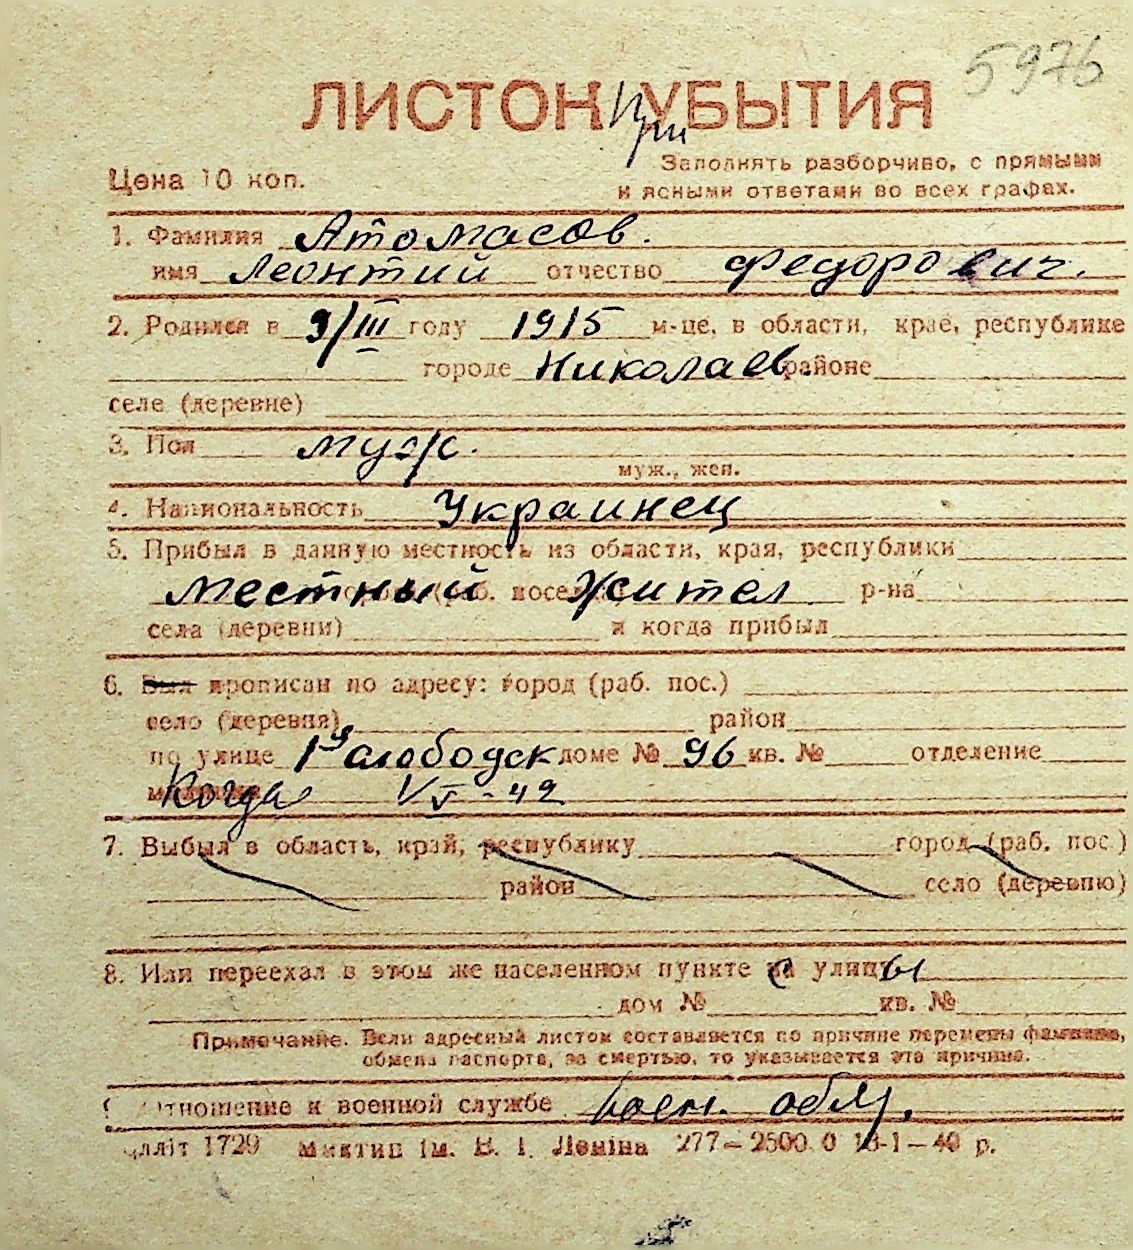 5976
ЛИСТОК При УБЫТИЯ
Цена 10 коп.
Заполнять разборчиво, с прямыми
и ясными ответами во всех графах.
1. Фамилия Атомасов.
имя Леонтий отчество Федорович.
2. Родился в 9/III году 1915 м-це, в области, крае, республике
городе Николаев. районе
селе (деревне)
3. Пол муж.
муж., жен.
4. Национальность Украинец
5. Прибыл в данную местность из области, края, республики
местный жител р-на
села (деревни) и когда прибыл
6. Был прописан по адресу: город (раб. пос.)
село (деревня) район
по улице 1я слободск доме № 96 кв. № отделение
Когда V-42
7. Выбыл в область, край, республику город (раб. пос.)
район село (деревню)
8. Или переехал в этом же населенном пункте с улицы
дом № кв. №
Примечание. Если адресный листок составляется по причине перемены фамилии,
обмена паспорта, за смертью, то указывается эта причина.
Отношение к военной службе воен. обяз.
лліт 1729 Миктип ім. В. І. Леніна 277—2500.0 18-1-40 р.